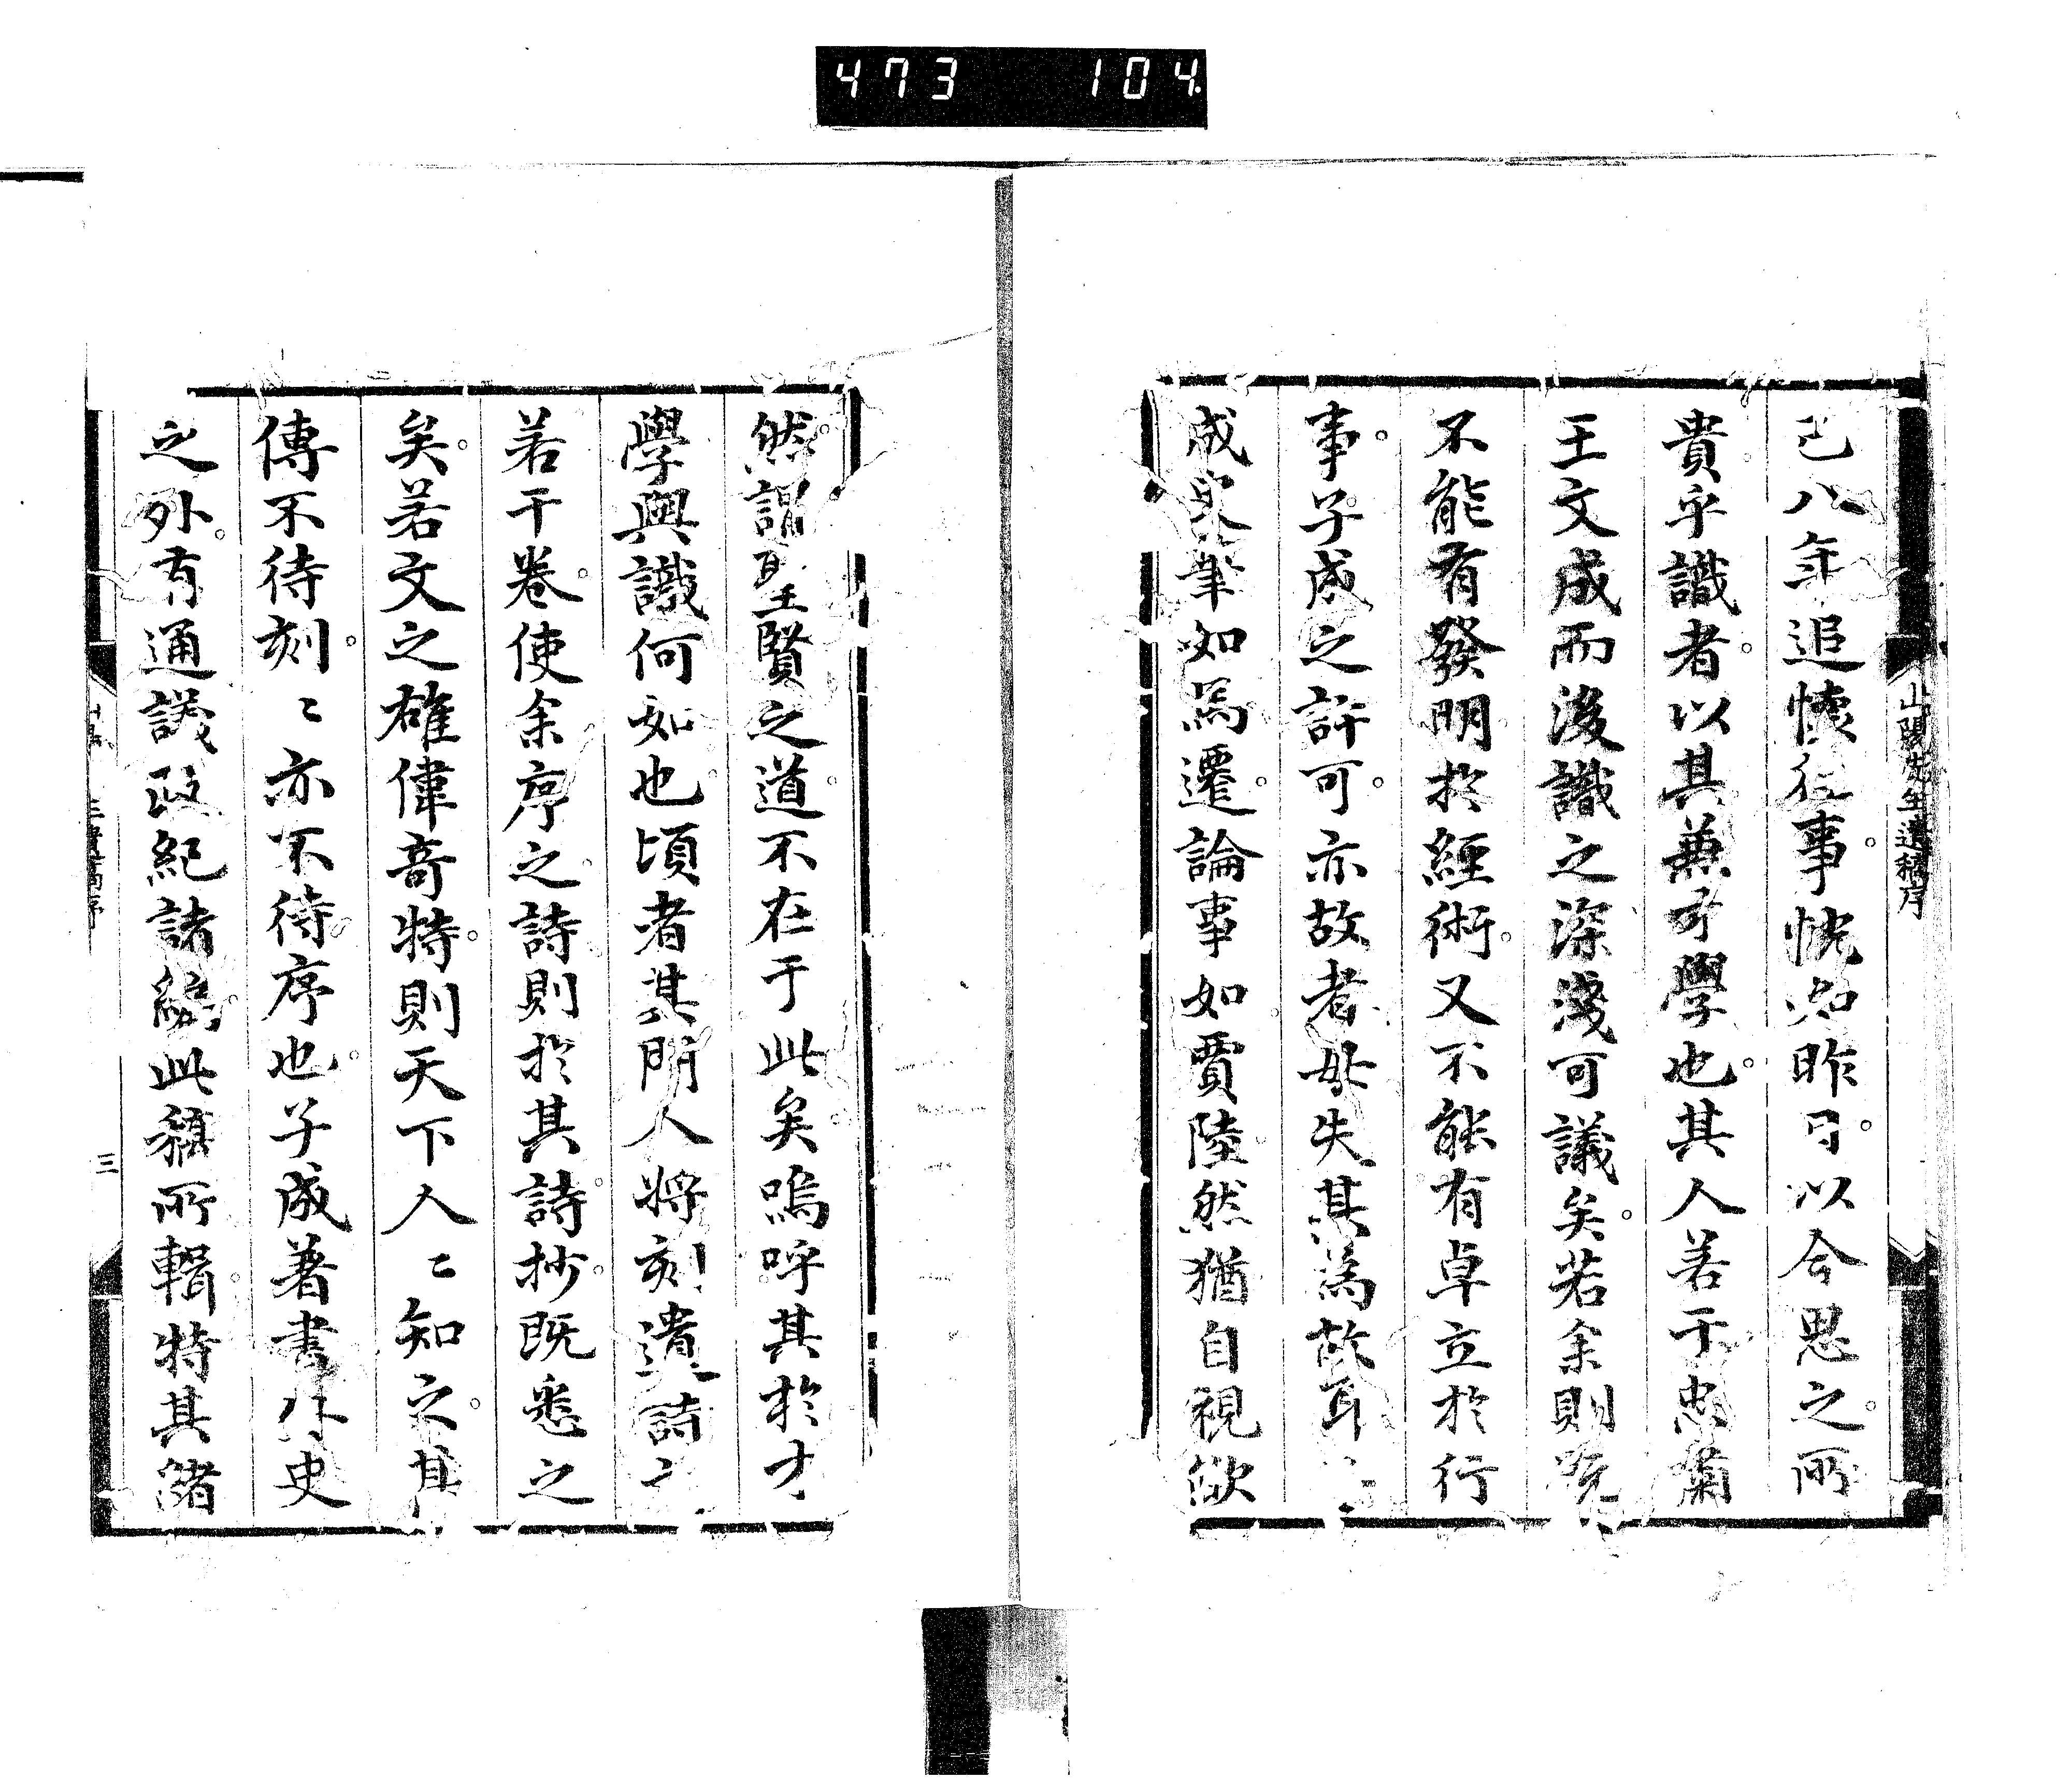 473 104
山陽先生遺稿序
已八年追懐往事怳如昨日以今思之所
貴乎識者以其兼才學也其人若于忠肅
王文成而後識之深淺可議矣若余則既
不能有發明於經術又不能有卓立於行
事子成之許可亦故者毋失其為故耳
成史筆如馬遷論事如賈陸然猶自視欿
然謂聖賢之道不在于此矣嗚呼其於才
學與識何如也頃者其門人將刻遺詩文
若干卷使余序之詩則於其詩抄既悉之
矣若文之雄偉奇特則天下人〻知之其
傳不待刻〻亦不待序也子成著書外史
之外有通議政紀諸編此稿所輯特其緒
三